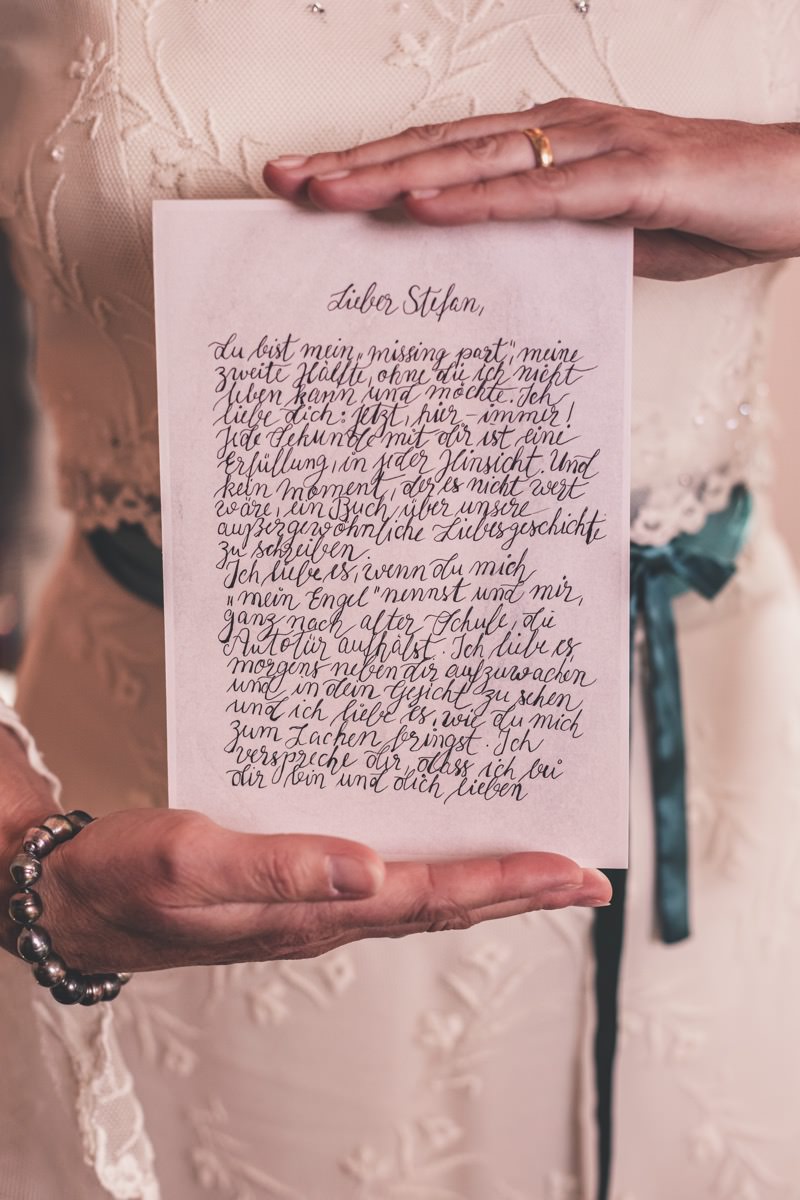 Lieber Stefan,
du bist mein „missing part“, meine
zweite Hälfte, ohne die ich nicht
leben kann und möchte. Ich
liebe dich: jetzt, hier – immer!
Jede Sekunde mit dir ist eine
Erfüllung, in jeder Hinsicht. Und
kein Moment, der es nicht wert
wäre, ein Buch über unsere
außergewöhnliche Liebesgeschichte
zu schreiben.
Ich liebe es, wenn du mich
„mein Engel“ nennst und mir,
ganz nach alter Schule, die
Autotür aufhälst. Ich liebe es
morgens neben dir aufzuwachen
und in dein Gesicht zu sehen,
und ich liebe es, wie du mich
zum Lachen bringst. Ich
verspreche dir, dass ich bei
dir bin und dich lieben